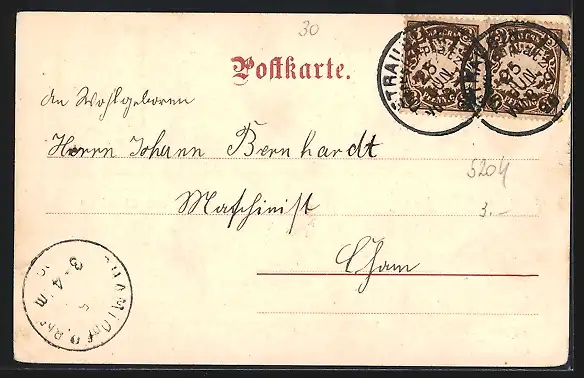 30
Postkarte.
An Wohlgeboren
Herrn Johann Bernhardt
5204
Maschinist
3.-
Cham
3-4